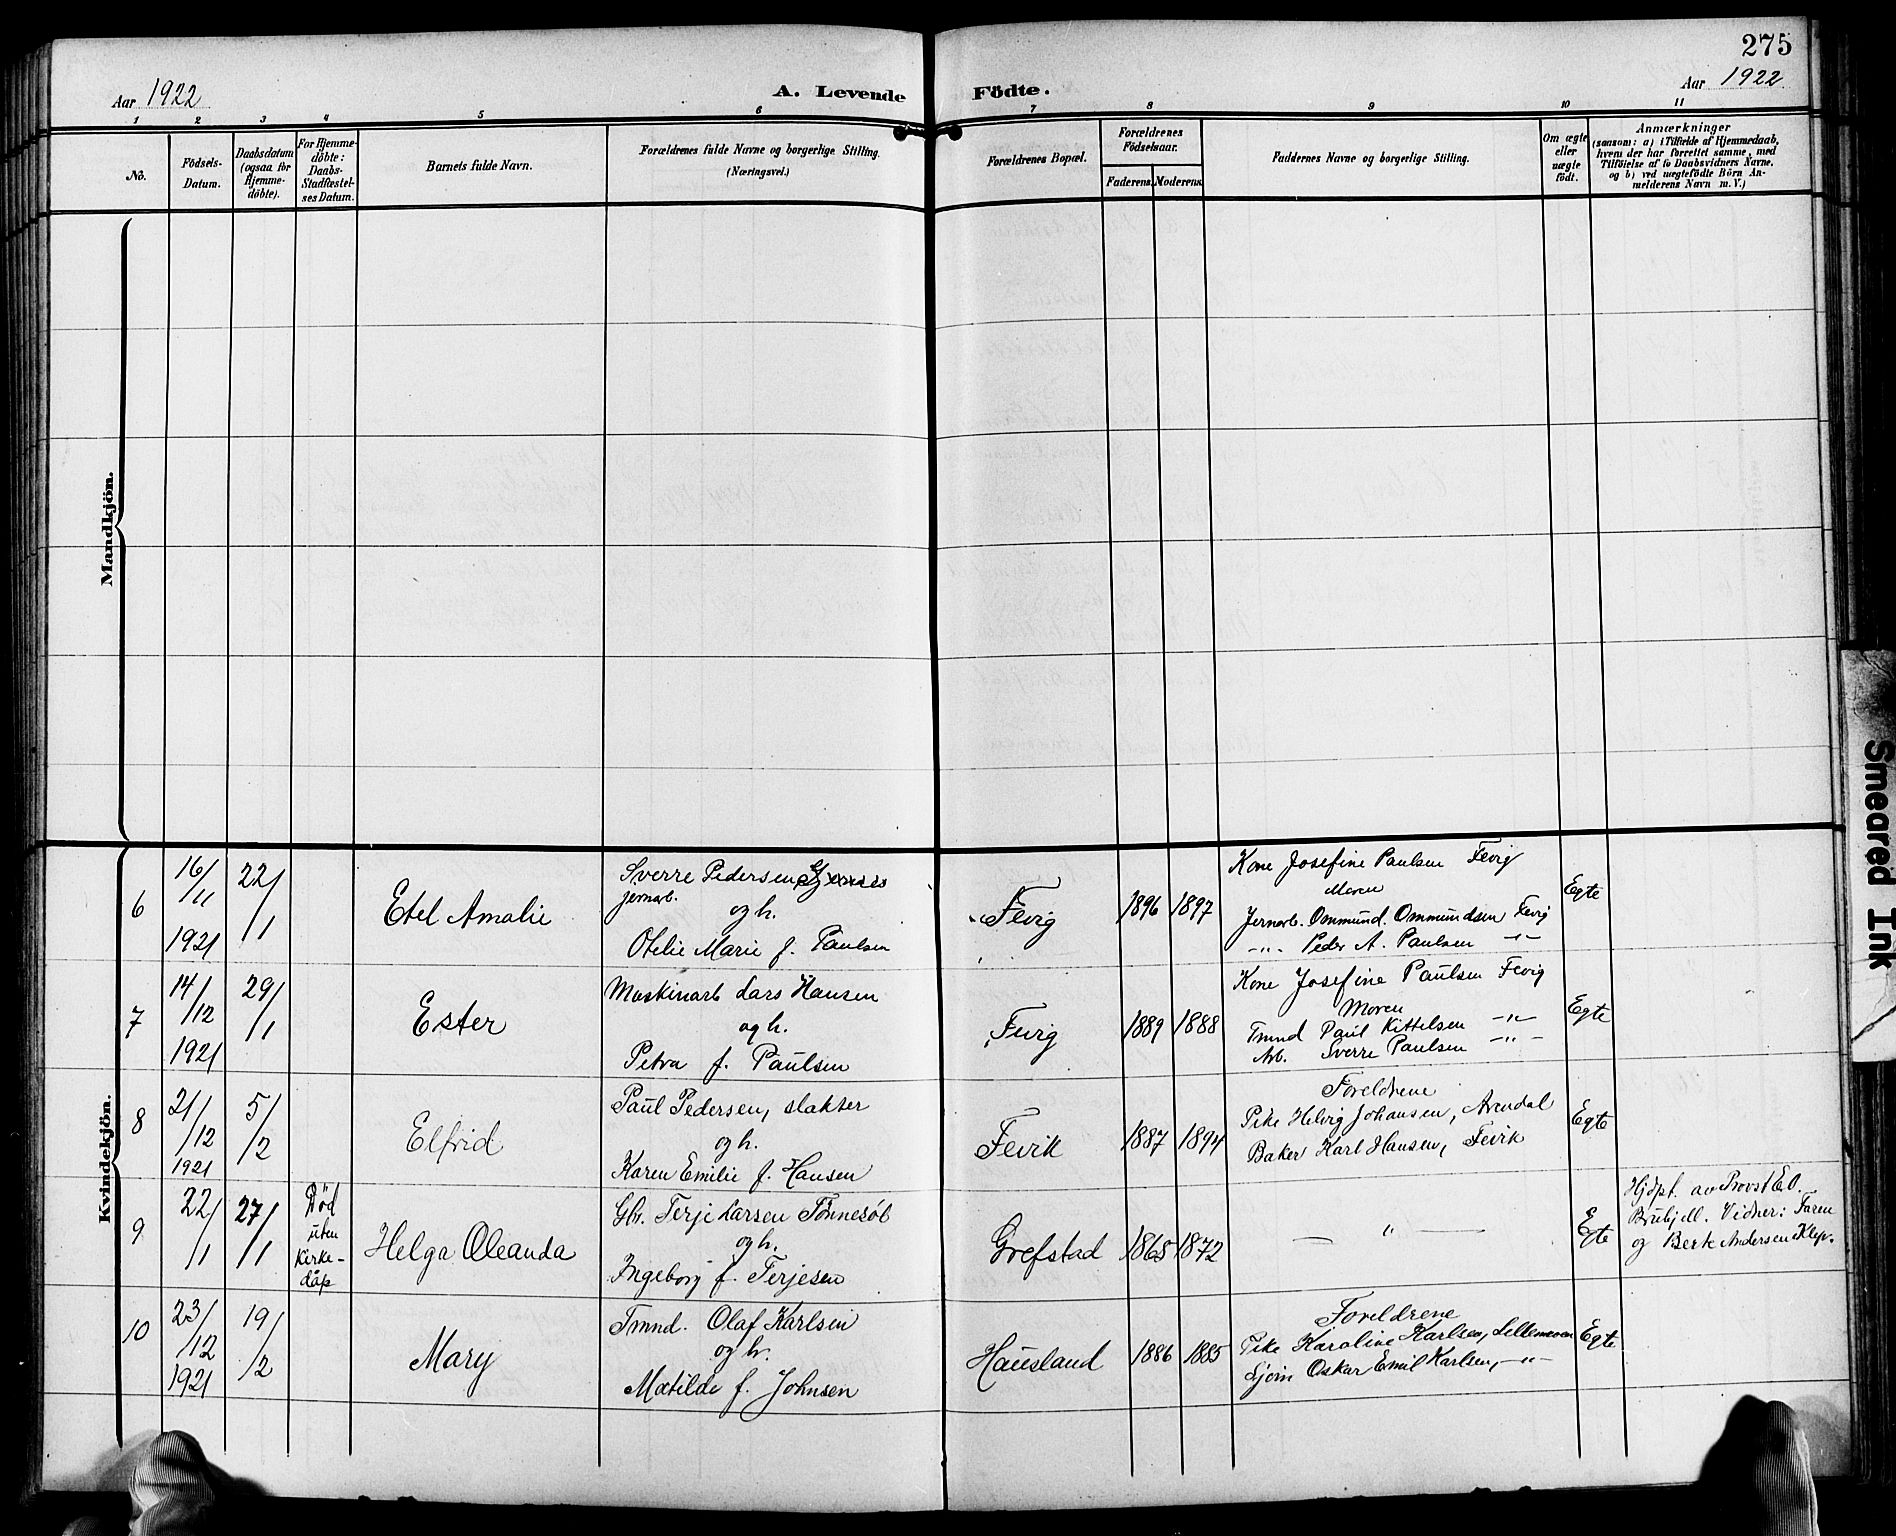 275
Aar 1922
A. Levende Födte.
Aar 1922
1 2 3 4 5 6 7 8 9 10 11
No.
Födsels-
Datum.
Daabsdatum
(ogsaa for
Hjemme-
döbte).
For Hjemme-
döbte:
Daabs-
Stadfæstel-
ses Datum.
Barnets fulde Navn.
Forældrenes fulde Navne og borgerlige Stilling.
(Næringsvei.)
Forældrenes Bopæl.
Forældrenes
Födselsaar.
Faderens. Moderens.
Faddernes Navne og borgerlige Stilling.
Om ægte
eller
uægte
födt.
Anmærkninger
(saasom: a) i Tilfælde af Hjemmedaab,
hvem der har forrettet samme, med
Tilföielse af to Daabsvidners Navne,
og b) ved uægtefödte Börn An-
melderens Navn m. V.)
Mandkjön.
Kvindekjön.
6
16/11 1921
22/1
Etel Amalie
Sverre Pedersen
jernarb.
og h.
Otelie Marie f. Paulsen
Fevig
1896 1897
Kone Josefine Paulsen Fevig
Moren
Jernarb. Ommund Ommundsen Fevig
-"- Peder A. Paulsen -"-
Egte
7
14/12 1921
29/1
Ester
Maskinarb Lars Hansen
og h.
Petra f. Paulsen
Fevig
1889 1888
Kone Josefine Paulsen Fevig
Moren
Tmnd Paul Kittelsen -"-
Arb. Sverre Paulsen -"-
Egte
8
21/12 1921
5/2
Elfrid
Paul Pedersen, slakter
og h.
Karen Emilie f. Hansen
Fevik
1887 1894
Foreldrene
Pike Helvig Johansen, Arendal
Baker Karl Hansen, Fevik
Egte
9
22/1
27/1
Död
uten
kirke-
dåp
Helga Oleanda
Gbr. Terje Larsen Tönnesöl
og h.
Ingeborg f. Terjesen
Grefstad
1865 1872
— " —
Egte
Hjdpt. av Provst E.O.
Bruhjell. Vidner: Faren
og Berte Andersen Klep.
10
23/12 1921
19/2
Mary
Tmnd. Olaf Karlsen
og h.
Matilde f. Johnsen
Hausland
1886 1885
Foreldrene
Pike Karoline Karlsen,
Sjöm Oskar Emil Karlsen, -"-
Egte
Smeared Ink